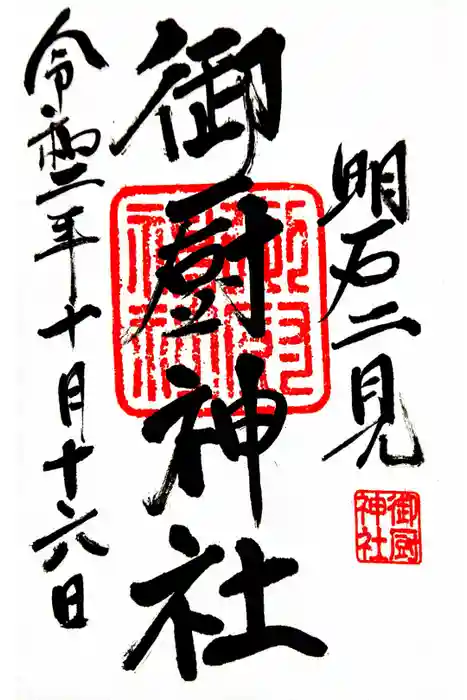 明石二見
御厨神社
令和二年十月十六日
御厨
神社